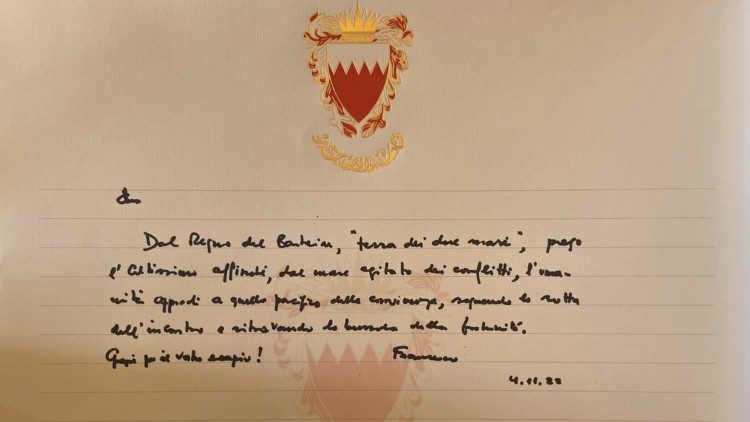 Dal Regno del Bahrein, "terra dei due mari", prego
l'Altissimo affinché, dal mare agitato dei conflitti, l'uma-
nità approdi a quello pacifico della convivenza, seguendo la rotta
dell'incontro e ritrovando la bussola della fraternità.
Grazie per il vostro esempio! Francesco
4.11.22